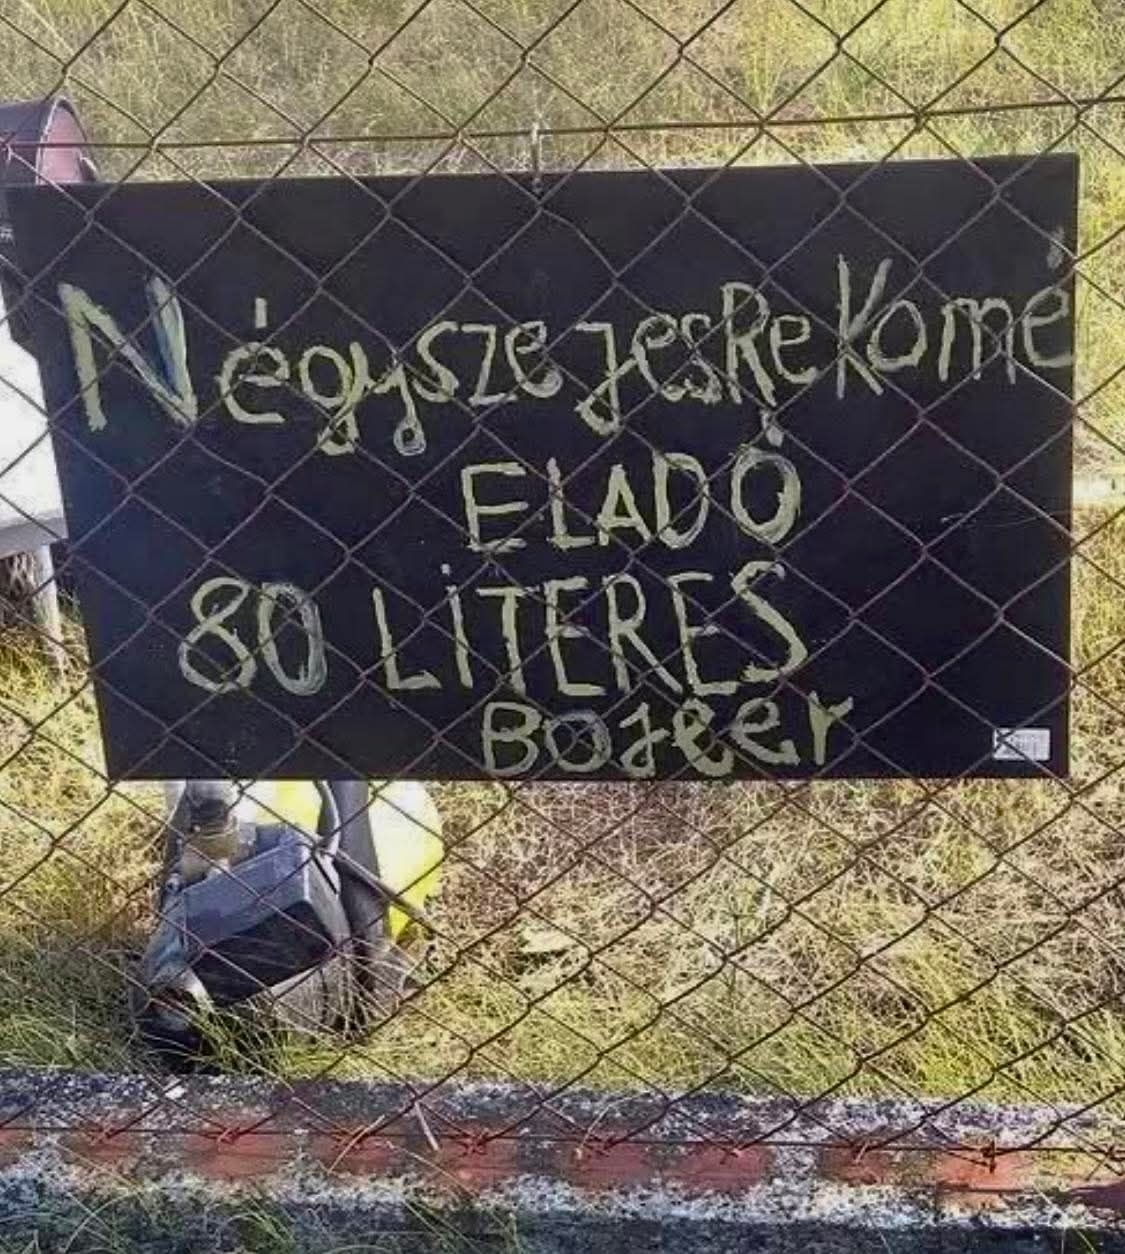 NégyszejesRekamé
ELADÓ
80 LiTERES
BOjeer